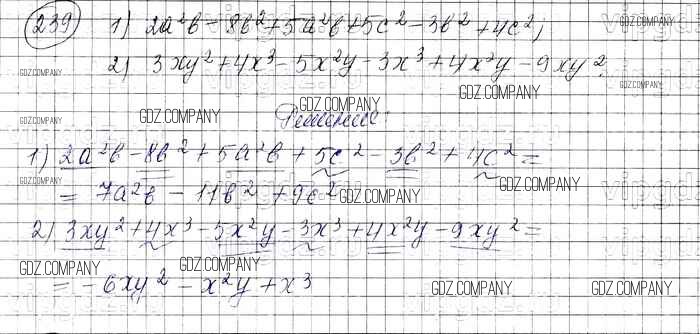 239 1) 2a²b - 8b² + 5a²b + 5c² - 3b² + 4c²;
2) 3xy² + 4x³ - 5x²y - 3x³ + 4x²y - 9xy².
GDZ.COMPANY
GDZ.COMPANY
GDZ.COMPANY
Решение:
1) 2a²b - 8b² + 5a²b + 5c² - 3b² + 4c² =
= 7a²b - 11b² + 9c² GDZ.COMPANY GDZ.COMPANY
2) 3xy² + 4x³ - 5x²y - 3x³ + 4x²y - 9xy² =
GDZ.COMPANY GDZ.COMPANY
= -6xy² - x²y + x³ GDZ.COMPANY GDZ.COMPANY